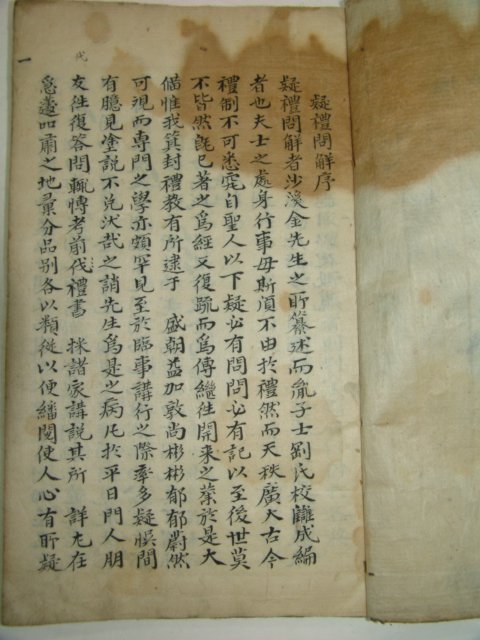 疑禮問解序
疑禮問解者沙溪金先生之所纂述而胤子士剛氏校讎成編
者也夫士之處身行事毋斯須不由於禮然而天秩廣大古今
禮制不可悉究自聖人以下疑必有問問必有記以至後世莫
不皆然旣已著之爲經又復䟽而爲傳繼往開來之業於是大
備惟我箕封禮敎有所逮于 盛朝益加敦尚彬彬郁郁蔚然
可observed而專門之學亦頗罕見至於臨事講行之際率多疑悞間
有臆見塗說不免汰哉之誚先生爲是之病凡於平日門人朋
友往復答問輒博考前代禮書 採諸家講說其所 詳尤在
急遽不肅之地彙分品別各以類從以便繙閱使人心有所疑
代
一